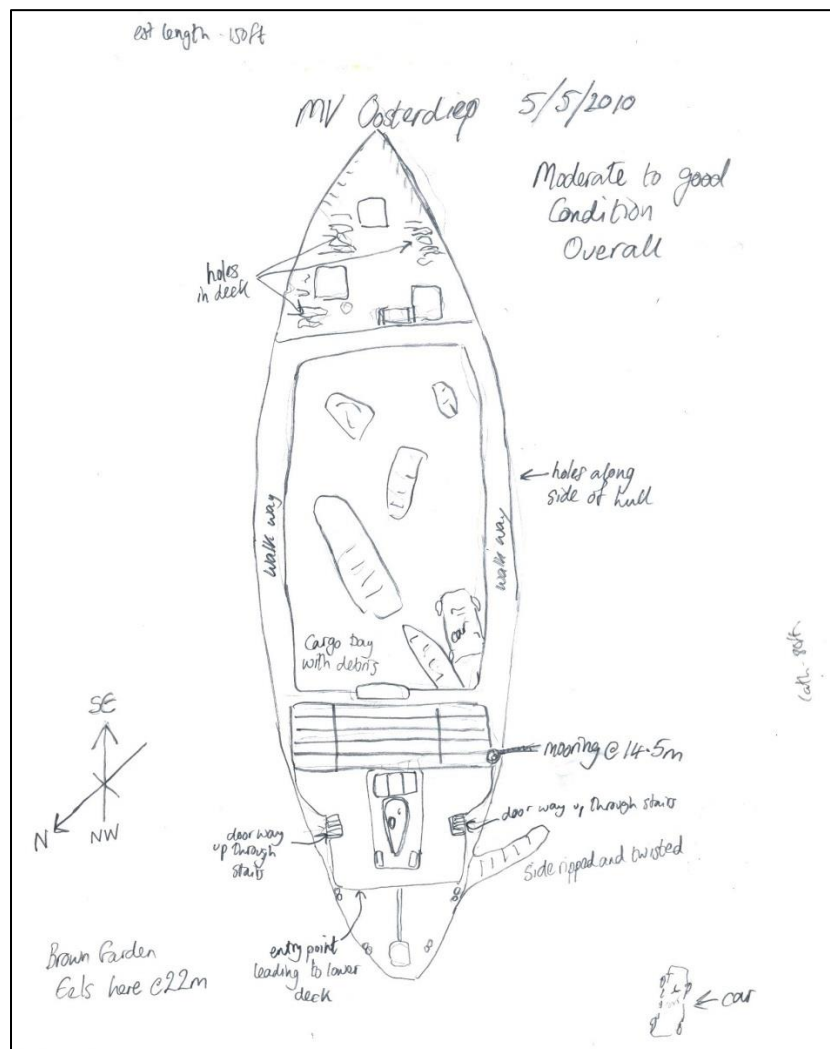 est length - 150ft
MV Oosterdiep 5/5/2010
Moderate to good
Condition
Overall
holes
in deck
holes along
side of hull
walk way
walk way
car
Cargo bay
with debris
SE
N
NW
mooring @ 14.5m
door way up through stairs
door way
up through
stairs
side ripped and twisted
entry point
leading to lower
deck
Brown Garden
Eels here @22m
car